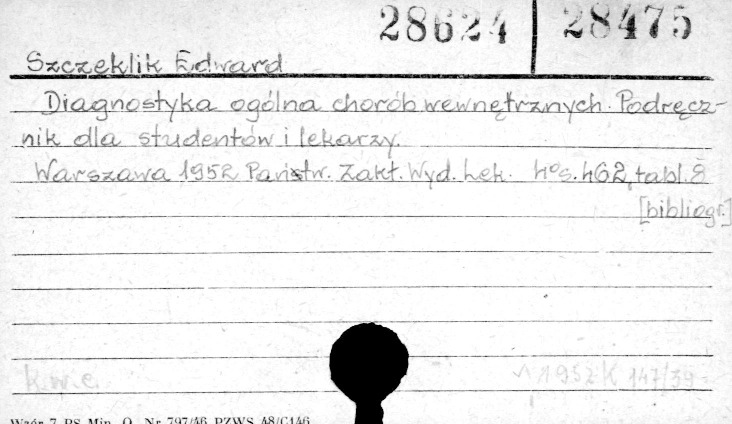 28624 28475
Szczeklik Edward
Diagnostyka ogólna chorób wewnętrznych. Podręcz-
nik dla studentów i lekarzy.
Warszawa 1952 Państw. Zakł. Wyd. Lek. 4º s. 462, tabl. 8
[bibliogr.]
k.w.e. 1952 K 147/39
Wzór 7 PS Min. O. Nr 797/46 PZWS A8/C146